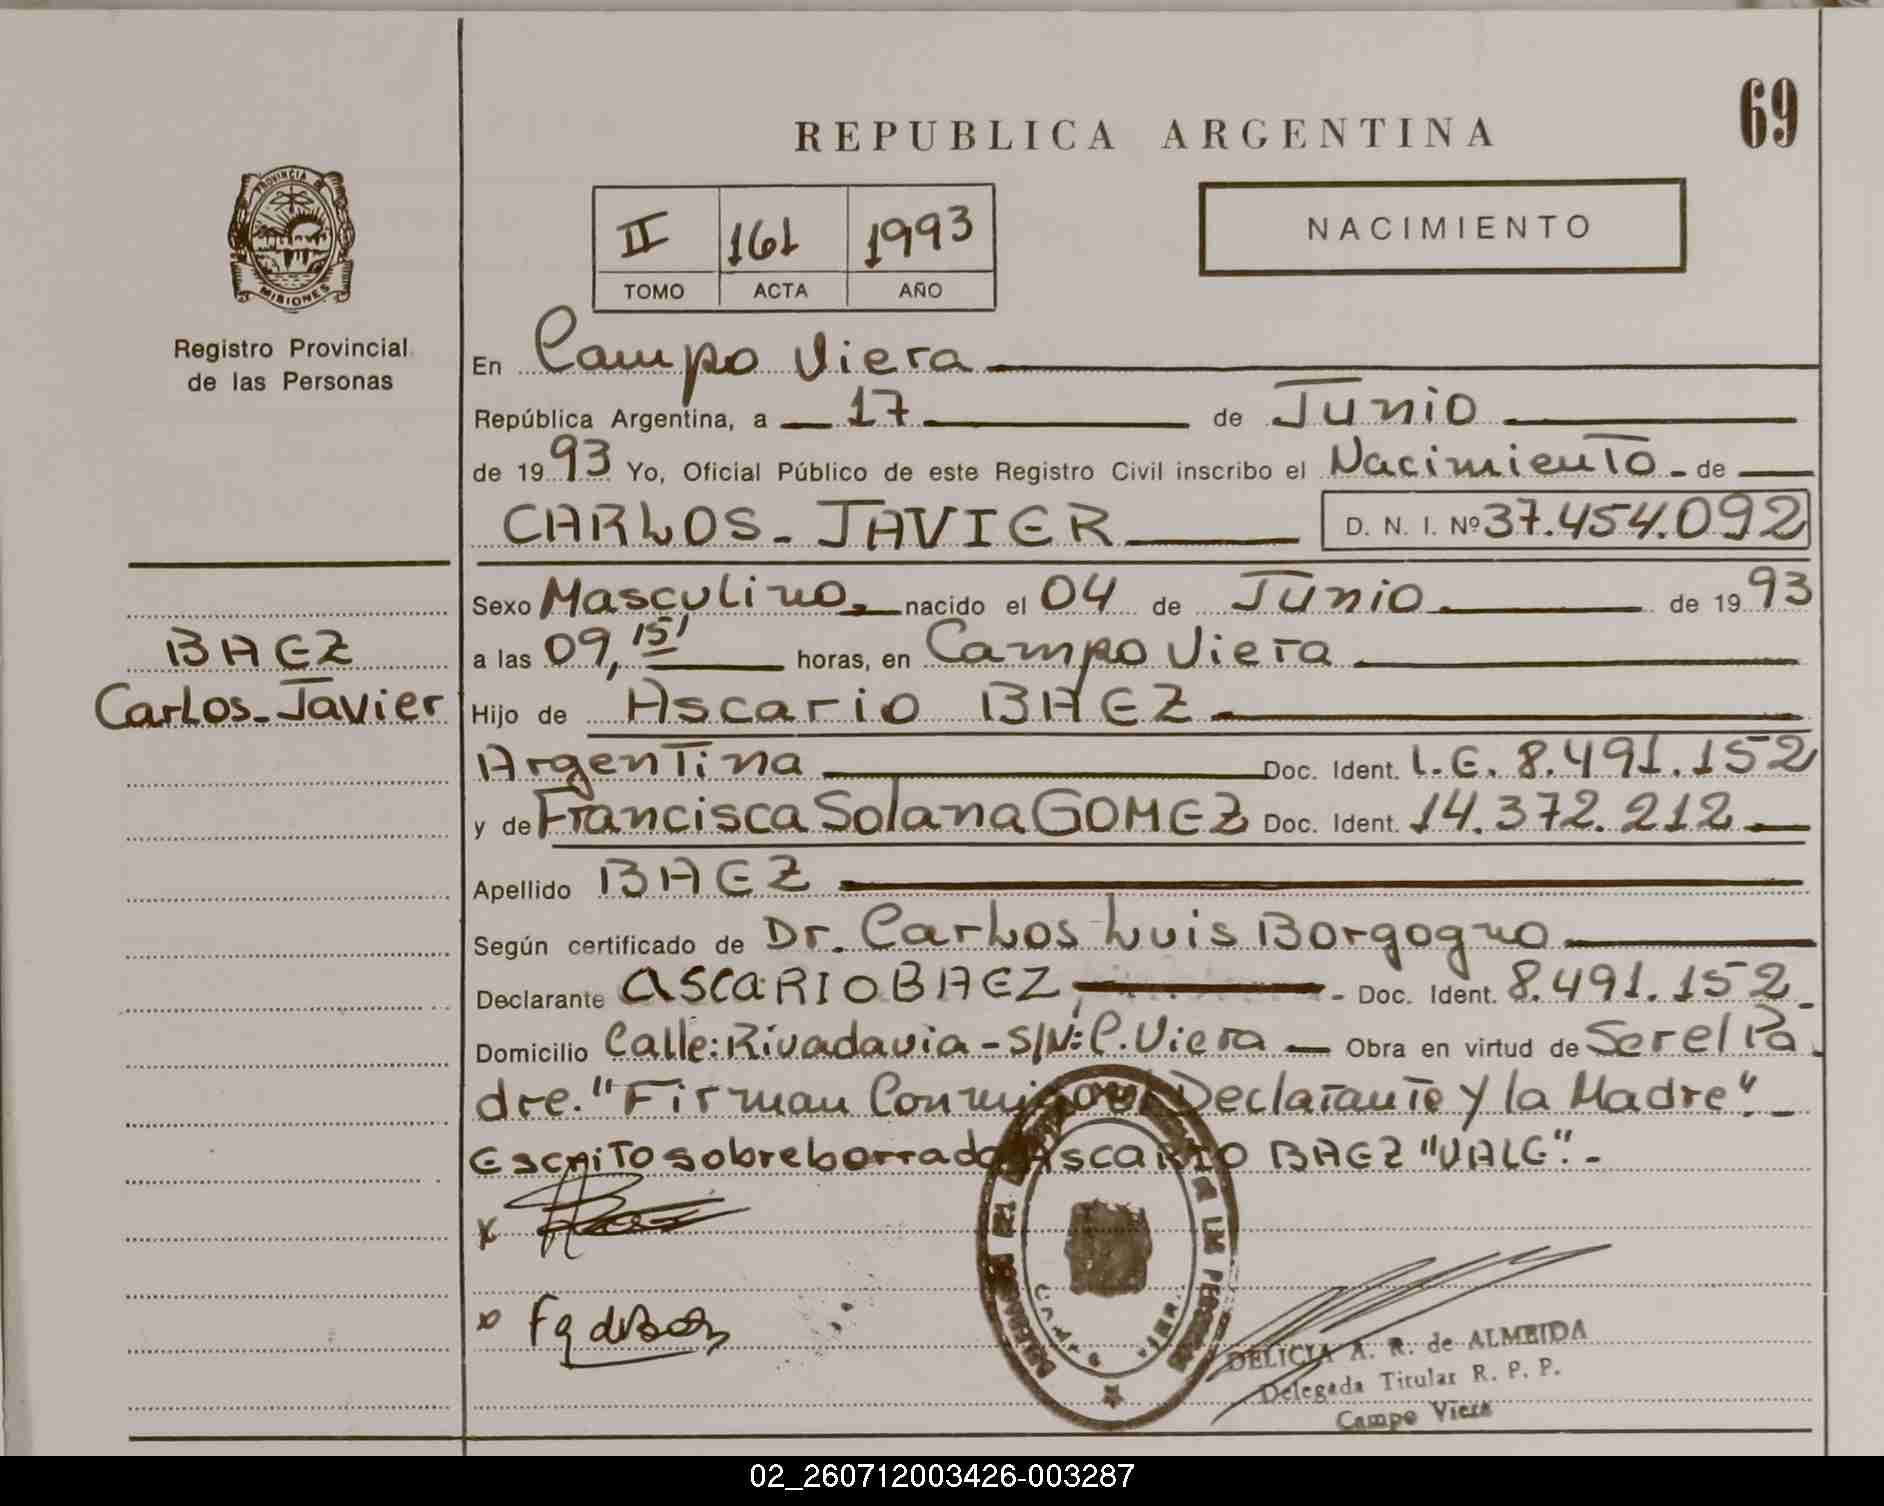 69
REPUBLICA ARGENTINA
NACIMIENTO
II 161 1993
TOMO ACTA AÑO
PROVINCIA DE
MISIONES
Registro Provincial
de las Personas
BAEZ
Carlos-Javier
En Campo Viera
República Argentina, a 17 de Junio
de 1993 Yo, Oficial Público de este Registro Civil inscribo el Nacimiento - de
CARLOS-JAVIER D. N. I. Nº 37.454.092
Sexo Masculino, nacido el 04 de Junio de 1993
a las 09,15' horas, en Campo Viera
Hijo de Ascario BAEZ
Argentina Doc. Ident. L.E. 8.491.152
y de Francisca Solana GOMEZ Doc. Ident. 14.372.212
Apellido BAEZ
Según certificado de Dr. Carlos Luis Borgogno
Declarante ASCARIO BAEZ - Doc. Ident. 8.491.152
Domicilio Calle: Rivadavia - S/Nº: C. Viera Obra en virtud de Ser el Pa
dre. "Firman Conmigo el Declarante y la Madre". -
Escrito sobre borrado Ascario BAEZ "VALE". -
x
x
DELICIA A. R. de ALMEIDA
Delegada Titular R. P. P.
Campo Viera
02_260712003426-003287